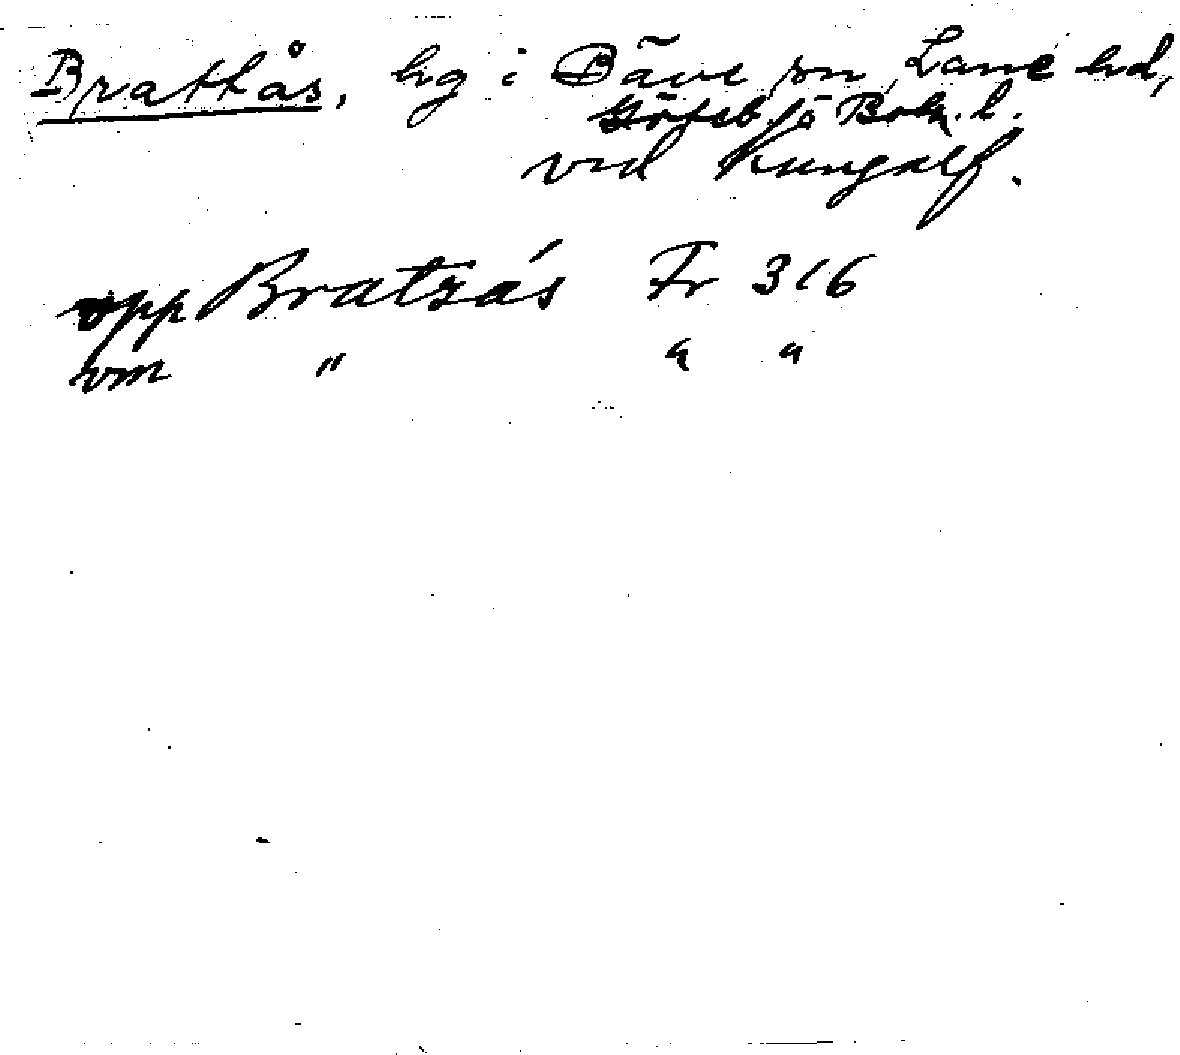 Brattås, hg i Bäve sn, Lane hd,
Göteb. o Boh. l.
vid Kungälf.
opp Bratzás Fr 316
vm " " "